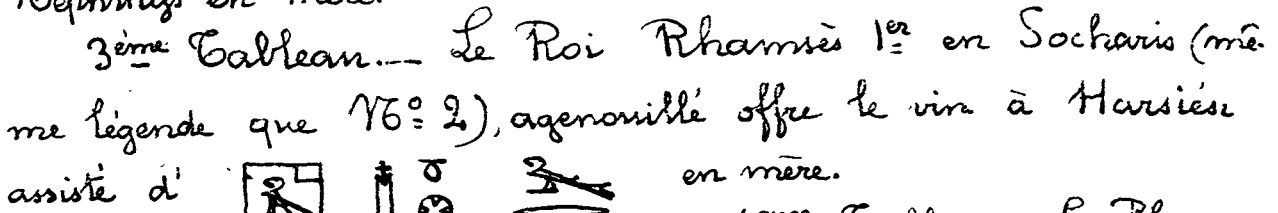 en mère.
3ème Tableau.__ Le Roi Rhamsès 1er en Socharis (mê-
me légende que No 2), agenouillé offre le vin à Harsiési
assisté d' en mère.
Tableau